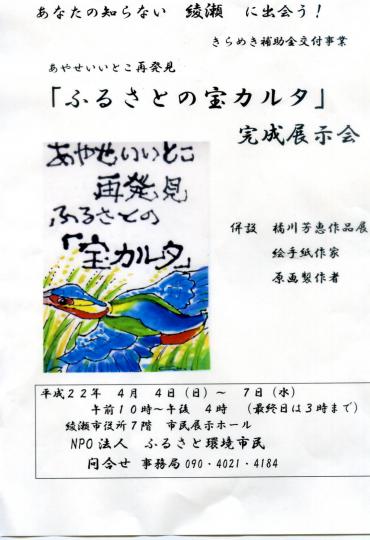 あなたの知らない 綾瀬 に出会う！
きらめき補助金交付事業
あやせいいとこ再発見
「ふるさとの宝カルタ」
完成展示会
あやせいいとこ
再発見
ふるさとの
「宝カルタ」
併設 橘川芳恵作品展
絵手紙作家
原画製作者
平成２２年 ４月 ４日（日）～ ７日（水）
午前１０時～午後 ４時 （最終日は３時まで）
綾瀬市役所７階 市民展示ホール
NPO法人 ふるさと環境市民
問合せ 事務局 090・4021・4184